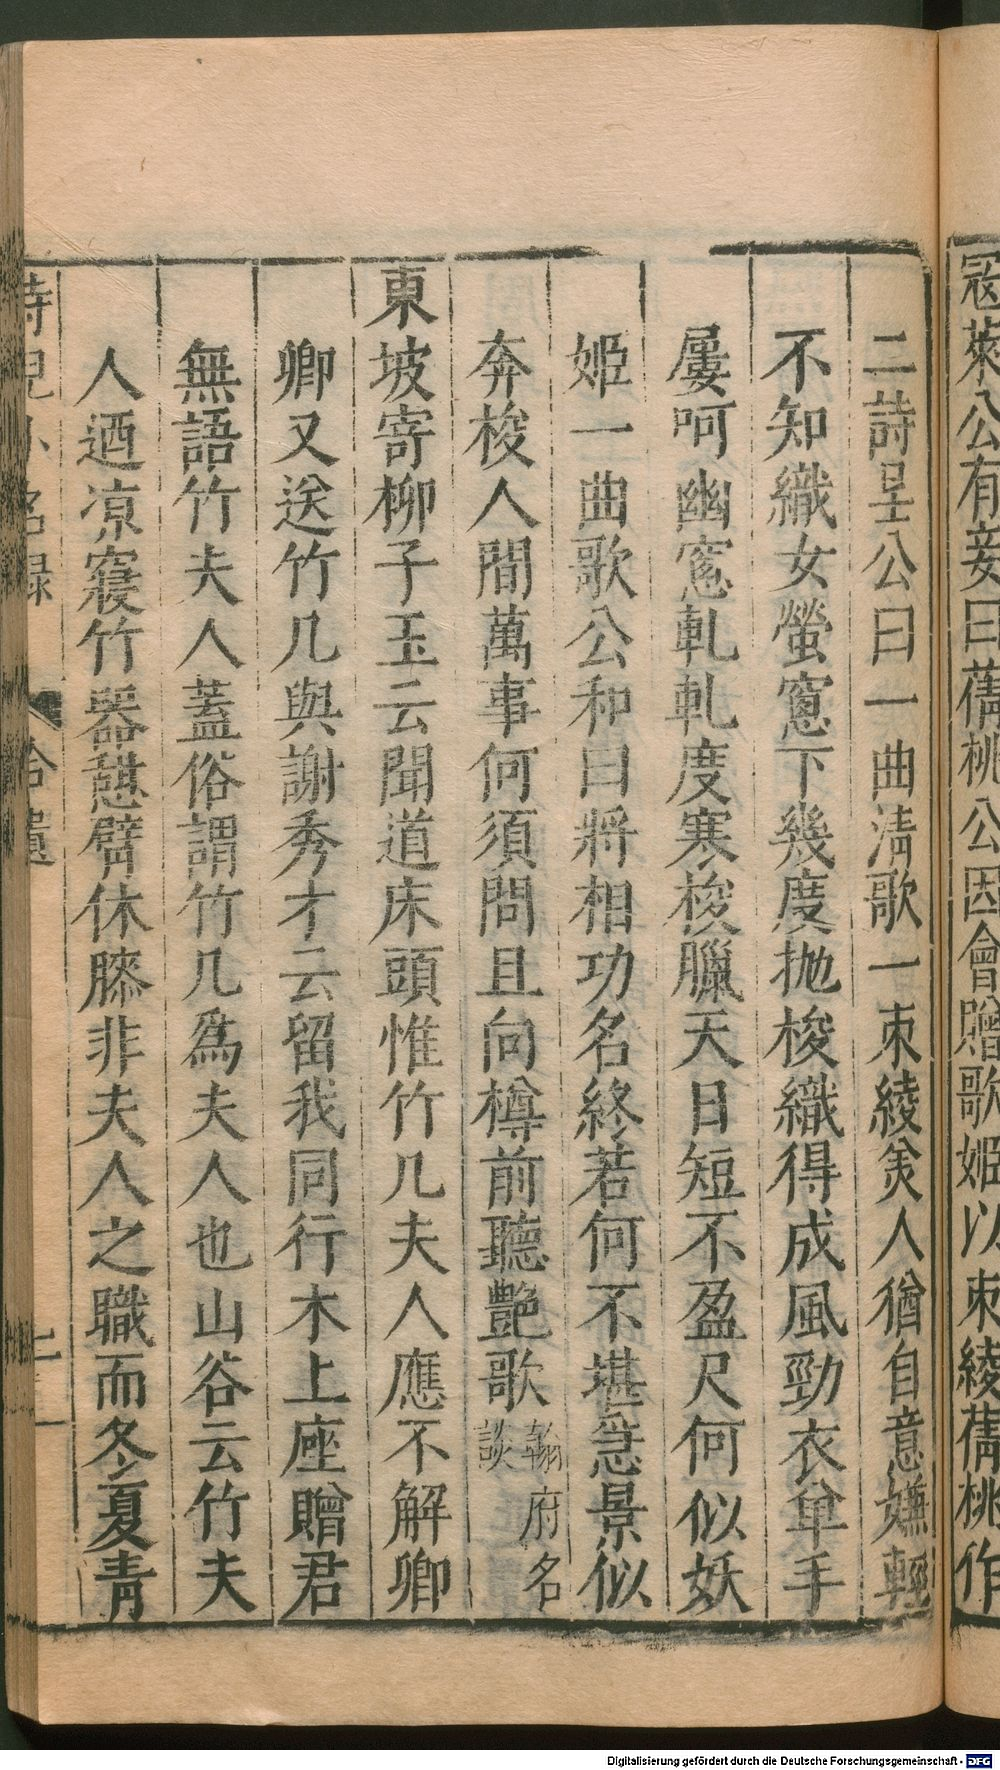 冦萊公有妾曰蒨桃公因會贈歌姬以束綾蒨桃作
二詩呈公曰一曲淸歌一束綾羙人猶自意嫌輕
不知織女螢窻下幾度抛梭織得成風勁衣单手
屢呵幽窻軋軋度寒梭臘天日短不盈尺何似妖
姬一曲歌公和曰將相功名終若何不堪急景似
奔梭人間萬事何須問且向樽前聽艶歌翰府名談
東坡寄柳子玉云聞道床頭惟竹几夫人應不解卿
卿又送竹几與謝秀才云留我同行木上座贈君
無語竹夫人蓋俗謂竹几爲夫人也山谷云竹夫
人迺凉寢竹器憇臂休膝非夫人之職而冬夏青
侍兒小名録 拾遺
Digitalisierung gefördert durch die Deutsche Forschungsgemeinschaft - DFG